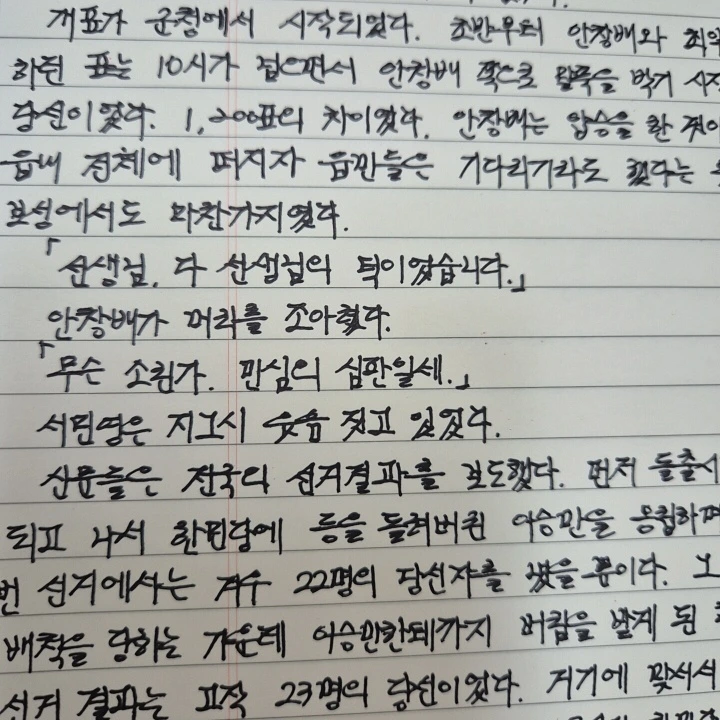 개표가 군청에서 시작되었다. 초반부터 안창배와 최익
하던 표는 10시가 넘으면서 안창배 쪽으로 말뚝을 박기 시작
당선이었다. 1,200표의 차이였다. 안창배는 압승을 한 것이
읍내 전체에 퍼지자 읍민들은 기다리기라도 했다는
보성에서도 마찬가지였다.
「선생님, 다 선생님의 덕이었습니다.」
안창배가 머리를 조아렸다.
「무슨 소린가. 민심의 심판일세.」
서민영은 지그시 웃음 짓고 있었다.
신문들은 전국의 선거결과를 보도했다. 먼저 돌출시
되고 나서 한민당에 등을 돌려버린 이승만을 옹립하며
번 선거에서는 겨우 22명의 당선자를 냈을 뿐이다. 그
배척을 당하는 가운데 이승만한테까지 버림을 받게 된
선거 결과는 고작 23명의 당선이었다. 거기에 맞서서